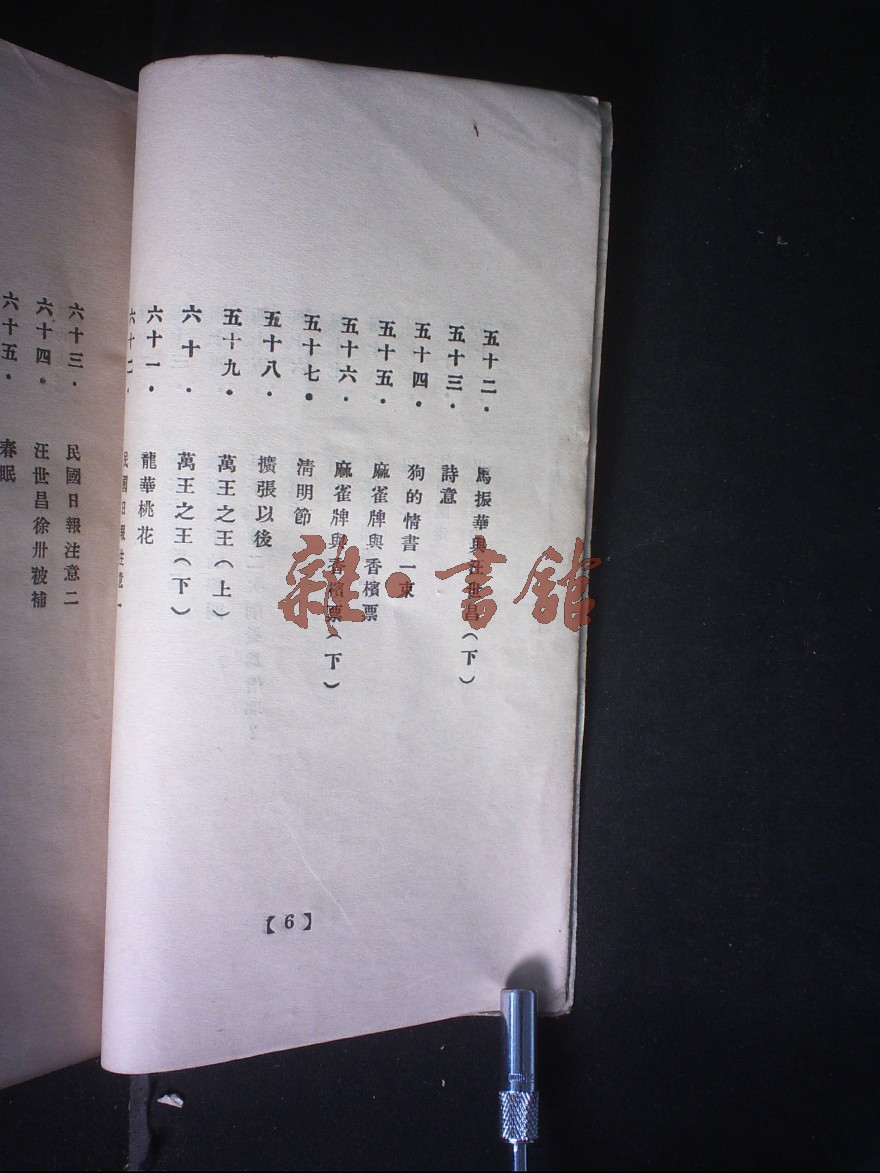 五十二． 馬振華與汪世昌（下）
五十三． 詩意
五十四． 狗的情書一束
五十五． 麻雀牌與香檳票
五十六． 麻雀牌與香檳票（下）
五十七． 清明節
五十八． 擴張以後
五十九． 萬王之王（上）
六十． 萬王之王（下）
六十一． 龍華桃花
六十二． 民國日報注意一
【6】
六十三． 民國日報注意二
六十四． 汪世昌徐卅被補
六十五． 春眠
雜·書館